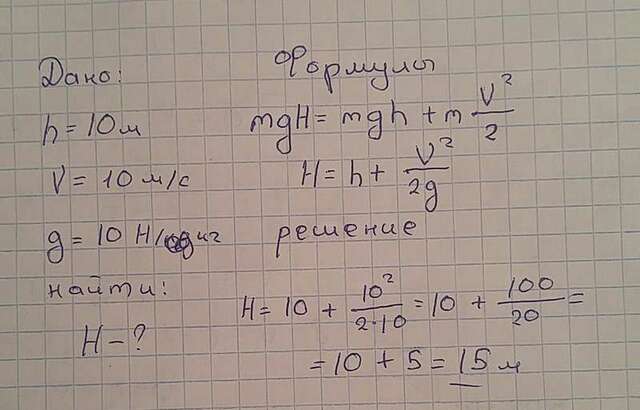 Дано:
h = 10 м
V = 10 м/с
g = 10 Н/кг
найти:
H - ?
Формулы
mgH = mgh + m V²/2
H = h + V²/2g
решение
H = 10 + 10²/2·10 = 10 + 100/20 =
= 10 + 5 = 15 м